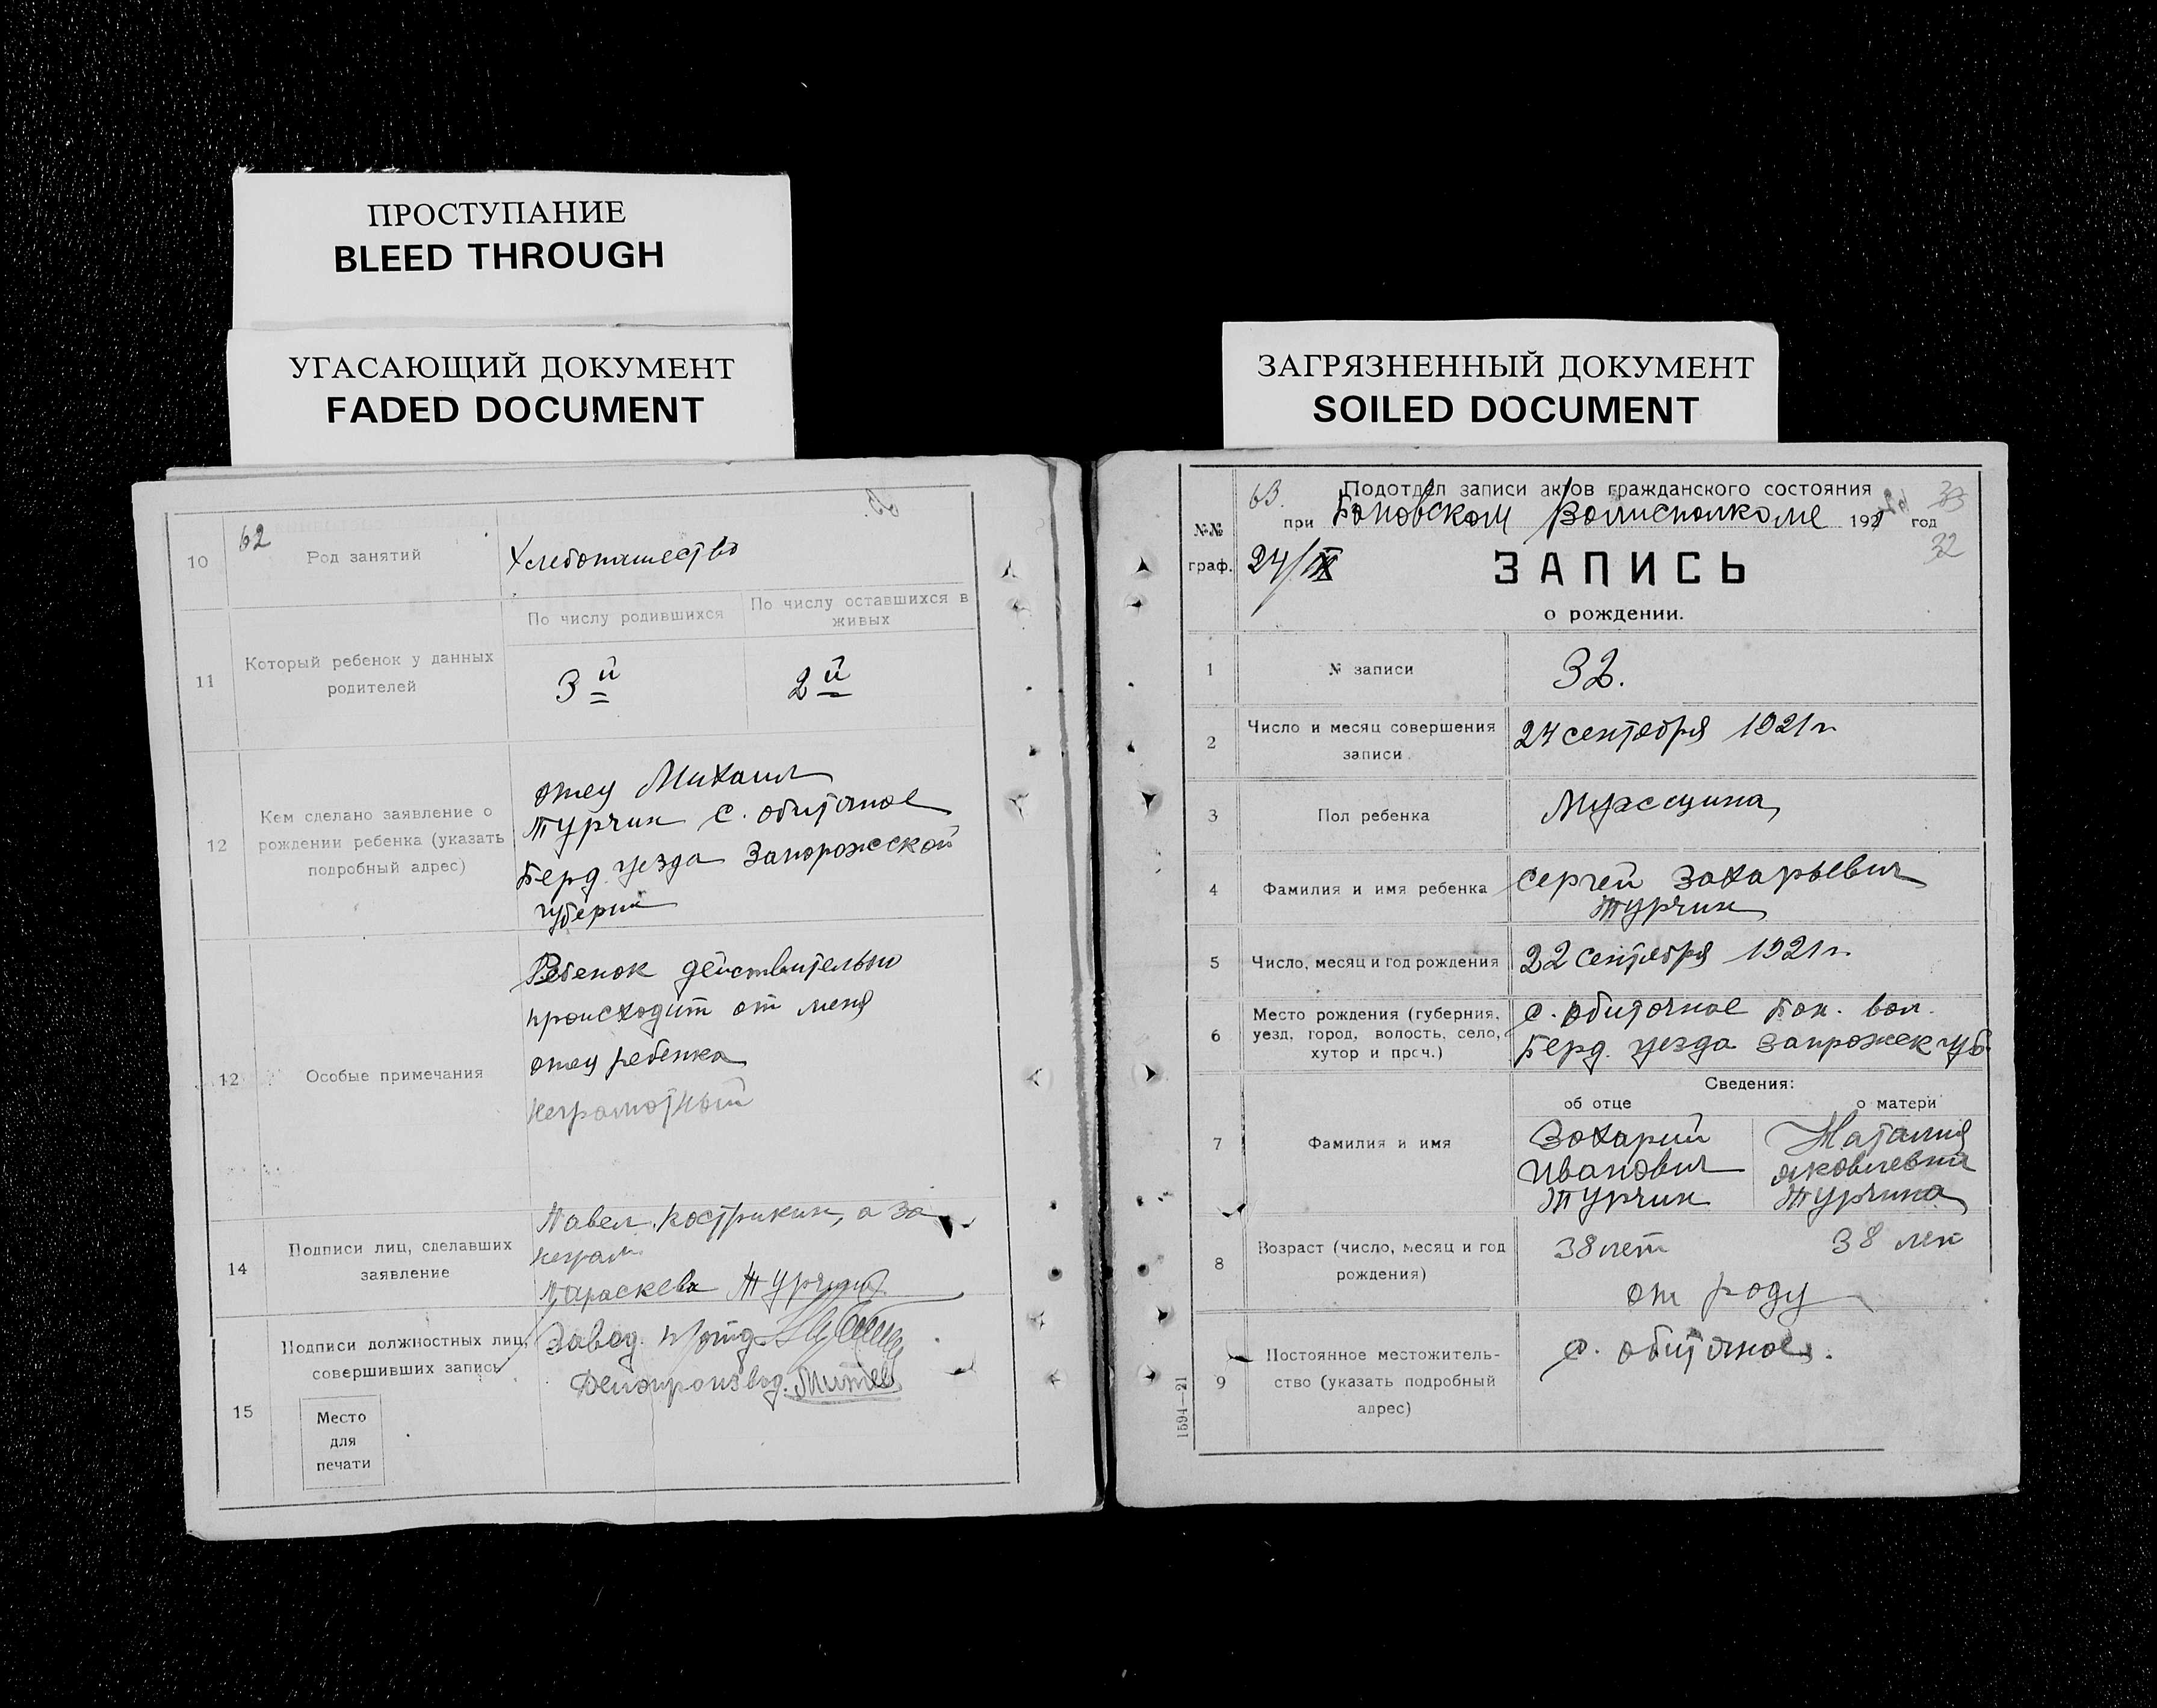 ПРОСТУПАНИЕ
BLEED THROUGH
УГАСАЮЩИЙ ДОКУМЕНТ
FADED DOCUMENT
62
10
Род занятий
Хлебопашество
11
Который ребенок у данных
родителей
По числу родившихся
По числу оставшихся в
живых
3й
2й
12
Кем сделано заявление о
рождении ребенка (указать
подробный адрес)
отец Михаил
Турчин с. Обиточное
Берд. уезда Запорожской
губерни
12
Особые примечания
Ребенок действительно
происходит от меня
отец ребенка
неграмотный
14
Подписи лиц, сделавших
заявление
Павел Кострикин, а за
неграм.
Параскева Турчин
15
Подписи должностных лиц,
совершивших запись
Завед. п/отд.
Делопроизвод.
Место
для
печати
ЗАГРЯЗНЕННЫЙ ДОКУМЕНТ
SOILED DOCUMENT
63.
Подотдел записи актов гражданского состояния
33
№№
граф.
при Бановском Волисполкоме 1921 год
32
24/IX
ЗАПИСЬ
о рождении.
1
№ записи
32.
2
Число и месяц совершения
записи.
24 сентября 1921 г.
3
Пол ребенка
Мужсщина
4
Фамилия и имя ребенка
Сергей Захарьевич
Турчин
5
Число, месяц и год рождения
22 сентября 1921 г.
6
Место рождения (губерния,
уезд, город, волость, село,
хутор и проч.)
с. Обиточное Бан. вол.
Берд. уезда Запрожск губ.
Сведения:
об отце
о матери
7
Фамилия и имя
Захарий
Иванович
Турчин
Наталия
Яковлевна
Турчина
8
Возраст (число, месяц и год
рождения)
38 лет
38 лет
от роду
9
Постоянное местожитель-
ство (указать подробный
адрес)
с. Обиточное.
1594—21